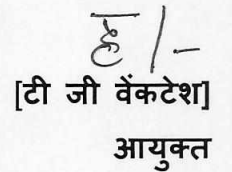 ह/-
[टी जी वेंकटेश]
आयुक्त